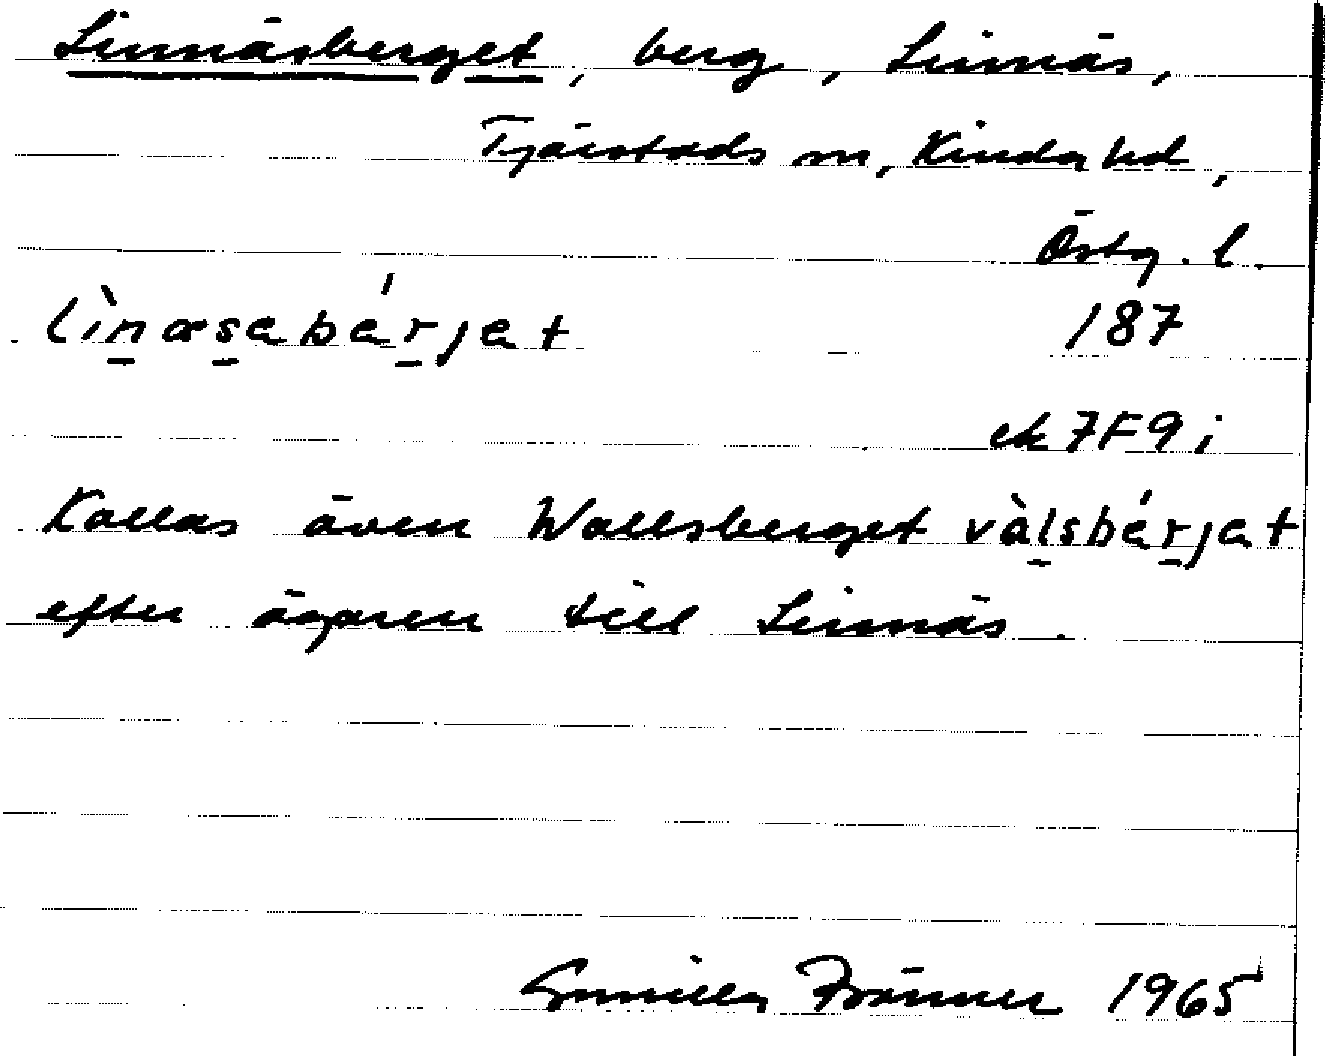 Linnäsberget, berg, Linnäs,
Tjärstads sn, Kinda hd,
Östg. l.
lìnæsabǽrjat 187
ek 7F9i
Kallas även Wallsberget vàlsbǽrjat
efter ägaren till Linnäs.
Gunilla 1965